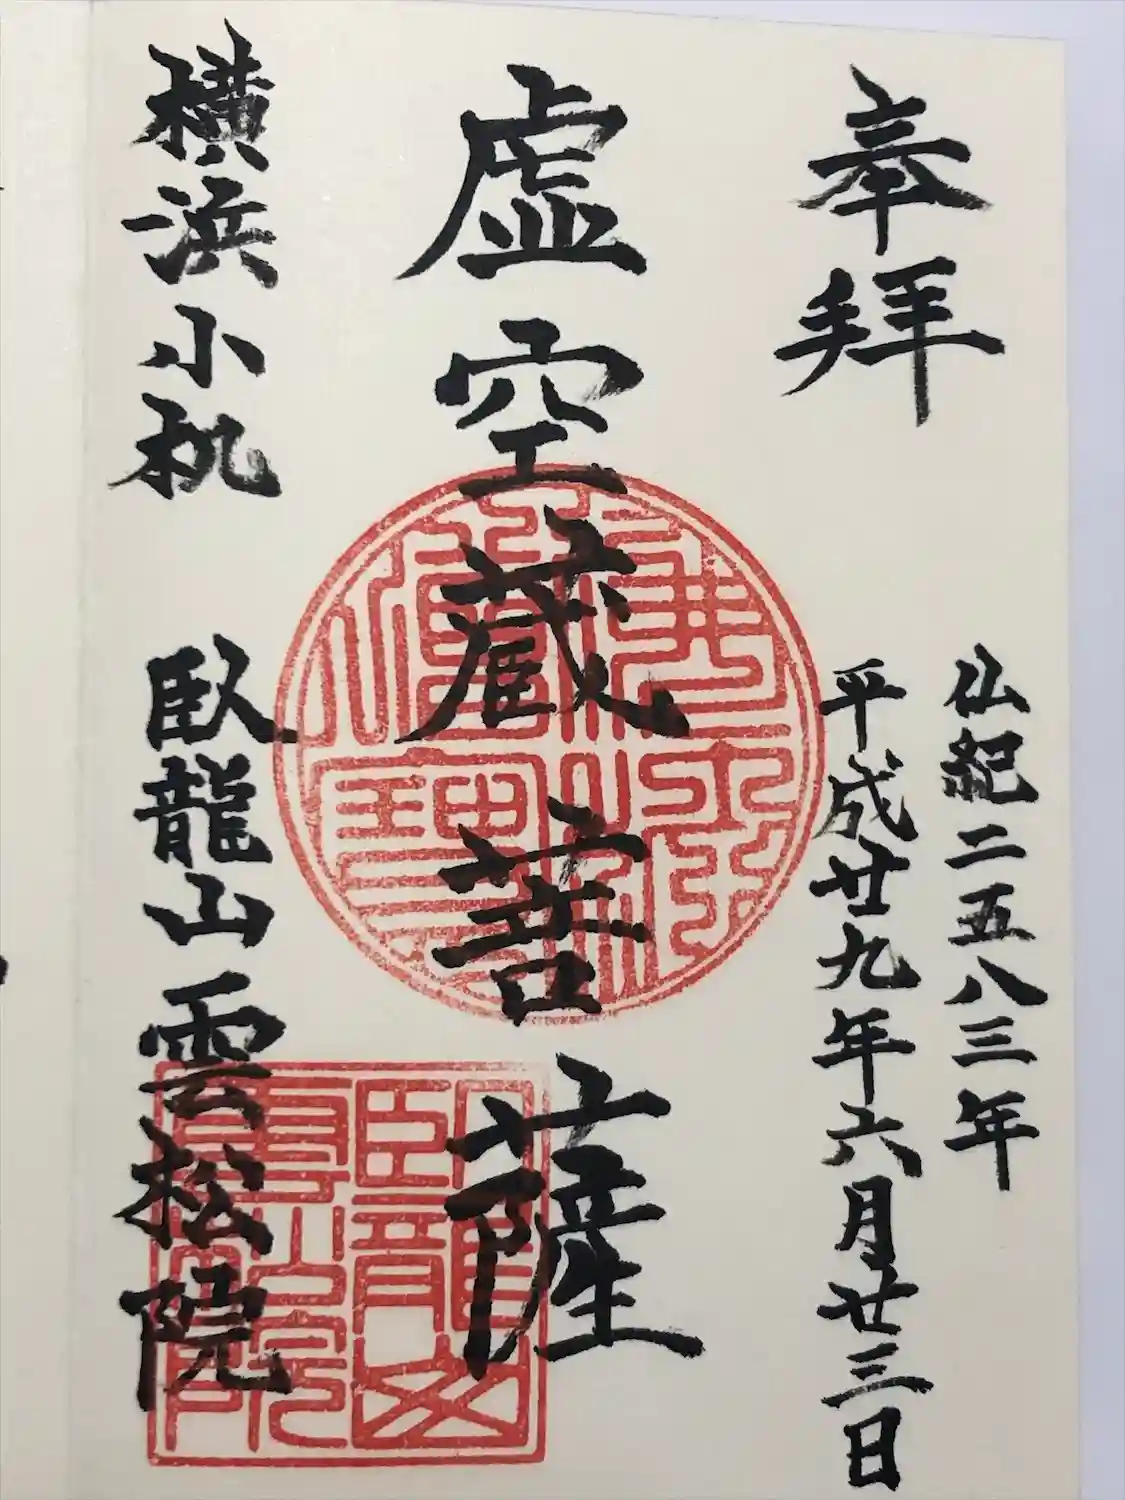 奉拜
仏紀二五八三年
平成廿九年六月廿三日
虚空蔵菩薩
横浜小机
臥龍山雲松院